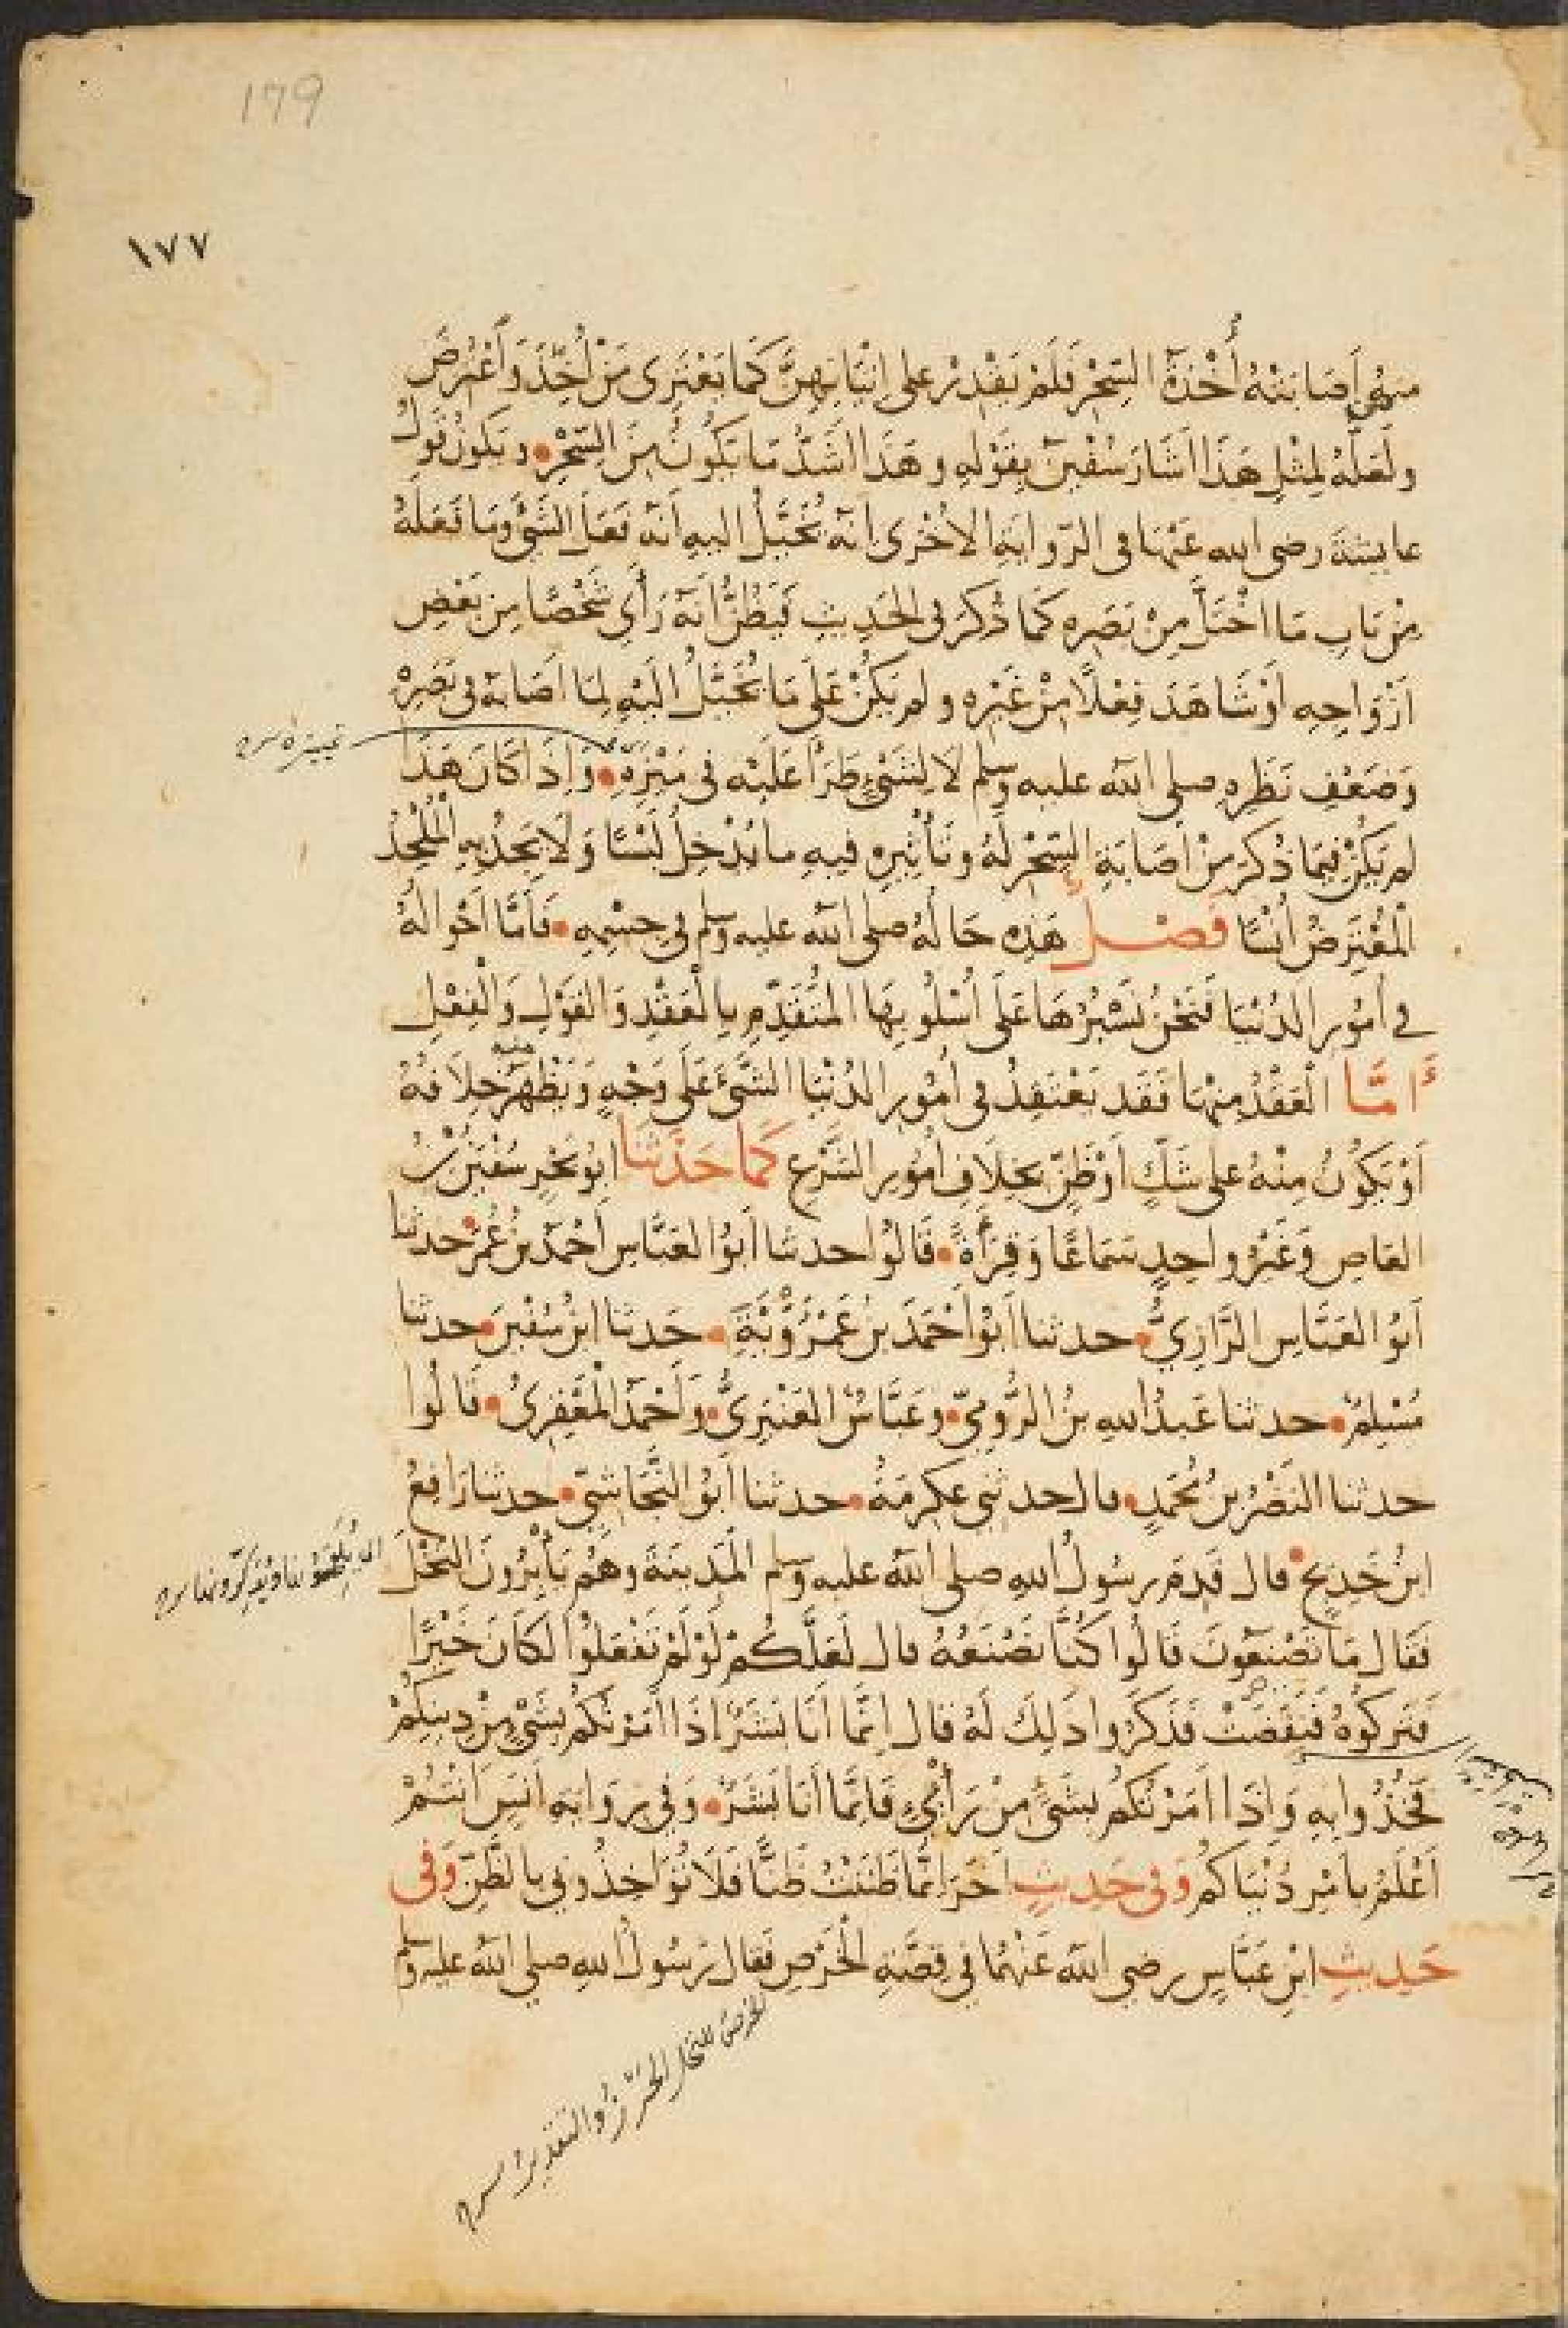 179
١٧٧
منهن أَصَابَتْهُ أُخْذَةُ السِّحْرِ فَلَمْ يَقْدِرْ على إِتْيَانِهِنَّ كَمَا يَعْتَرِى مَنْ أُخِّذَ وَاُعْتُرِضَ
ولَعَلَّهُ لِمِثْلِ هَذَا اَشَارَ سُفْيٰنُ بِقَوْلِهِ وهَذَا اَشَدُّ مَا يَكُونُ مِنَ السِّحْرِ • ويَكُونُ قَوْلُ
عايشة رضى الله عَنْهَا فى الرِّوَايَةِ الاُخْرٰى اِنَّهُ يُخَيَّلُ اليهِ اَنَّهُ فَعَلَ الشَّىْءَ وَمَا فَعَلَهُ
مِنْ بَابِ مَا اخْتَلَّ مِنْ بَصَرِهِ كَمَا ذُكِرَ فى الحَدِيثِ فَيَظُنُّ اَنَّهُ رَأَى شَخْصًا مِن بَعْضِ
اَزْوَاجِهِ اَوْ شَاهَدَ فِعْلًا مِنْ غَيْرِهِ ولم يَكُنْ عَلَى مَا يُخَيَّلُ اِلَيْهِ لِمَا اَصَابَهُ فى بَصَرِهِ
وَضَعْفِ نَظَرِهِ صلى الله عليه وسلم لَا لِشَىْءٍ طَرَأَ عَلَيْهِ فى مَيْزِهِ • وَاِذَا كَانَ هَذَا
تمييزه
لم يَكُنْ فيمَا ذُكِرَ مِنْ اِصَابَةِ السِّحْرِ لَهُ وتَأْثِيرِهِ فيهِ ما يُدْخِلُ لَبْسًا وَلَا يَجِدُ بِهِ الْمُلْحِدُ
الْمُعْتَرِضُ اُنْسًا فَصْلٌ هَذِهِ حَالُهُ صلى الله عليه وسلم فى جِسْمِهِ • فَاَمَّا اَحْوَالُهُ
فى اُمُورِ الدُّنْيَا فَنَحْنُ نَسْبُرُهَا عَلَى اُسْلُوبِهَا المُتَقَدِّمِ بِالْعَقْدِ وَالقَوْلِ وَالْفِعْلِ
اَمَّا الْعَقْدُ مِنْهَا فَقَد يَعْتَقِدُ فى اُمُورِ الدُّنْيَا الشَّىْءَ عَلَى وَجْهٍ وَيَظْهَرُ خِلَافُهُ
اَوْ يَكُونُ مِنْهُ على شَكٍّ اَوْ ظَنٍّ بِخِلَافِ اُمُورِ الشَّرْعِ كَمَا حَدَّثَنَا ابُو بَحْرٍ سُفْيٰنُ بْنُ
العَاصِ وَغَيْرُ واحِدٍ سَمَاعًا وَقِرَأَةً • قَالُوا حدثنا اَبُو العَبَّاسِ اَحْمَدُ بنُ عُمَرَ • حدثنا
اَبُو العَبَّاسِ الرَّازِيُّ • حدثنا اَبُو اَحْمَدَ بنُ عَمْرُوَيْهِ • حَدثنا ابنُ سُفْيٰنَ • حدثنا
مُسْلِمٌ • حدثنا عَبدُ اللهِ بنُ الرُّومِيِّ • وعَبَّاسٌ العَنْبَرِيُّ • وَاَحْمَدُ المَعْقِرِيُّ • قَالُوا
حدثنا النَضْرُ بنُ مُحَمَّدٍ • قال حدثنى عِكْرِمَةُ • حدثنا اَبُو النَّجَاشِيِّ • حدثنا رَافِعُ
ابنُ خَدِيجٍ • قال قَدِمَ رسُولُ اللهِ صلى اللهُ عليه وسلم المَدِينَةَ وهُمْ يَأْبُرُونَ النَّخْلَ
فقال مَا تَصْنَعُونَ قَالُوا كُنَّا نَصْنَعُهُ قال لَعَلَّكُمْ لَوْ لَمْ تَفْعَلُوا لَكَانَ خَيْرًا
فَتَركُوهُ فَنَفَضَتْ فَذَكَرُوا ذَلِكَ لَهُ فقال اِنَّمَا اَنَا بَشَرٌ اِذَا اَمَرْتُكُمْ بِشَىْءٍ مِنْ دِينِكُمْ
فَخُذُوا بِهِ وَاِذَا اَمَرْتُكُمْ بِشَىْءٍ مِنْ رَأْىٍ فَاِنَّمَا اَنَا بَشَرٌ • وَفى رِوَايَةِ اَنَسٍ اَنْتُمْ
اَعْلَمُ بِاَمْرِ دُنْيَاكُمْ وَفى حَدِيثٍ اٰخَرَ اِنَّمَا ظَنَنْتُ ظَنًّا فَلَا تُؤَاخِذُونِى بِالظَّنِّ وَفى
حَدِيثِ ابنِ عَبَّاسٍ رضي الله عَنْهُمَا فى قِصَّةِ الْخَرْصِ فَقَال رَسُولُ اللهِ صلى الله عليه وسلم
الخرص للنخل الحَزْرُ والتقدير